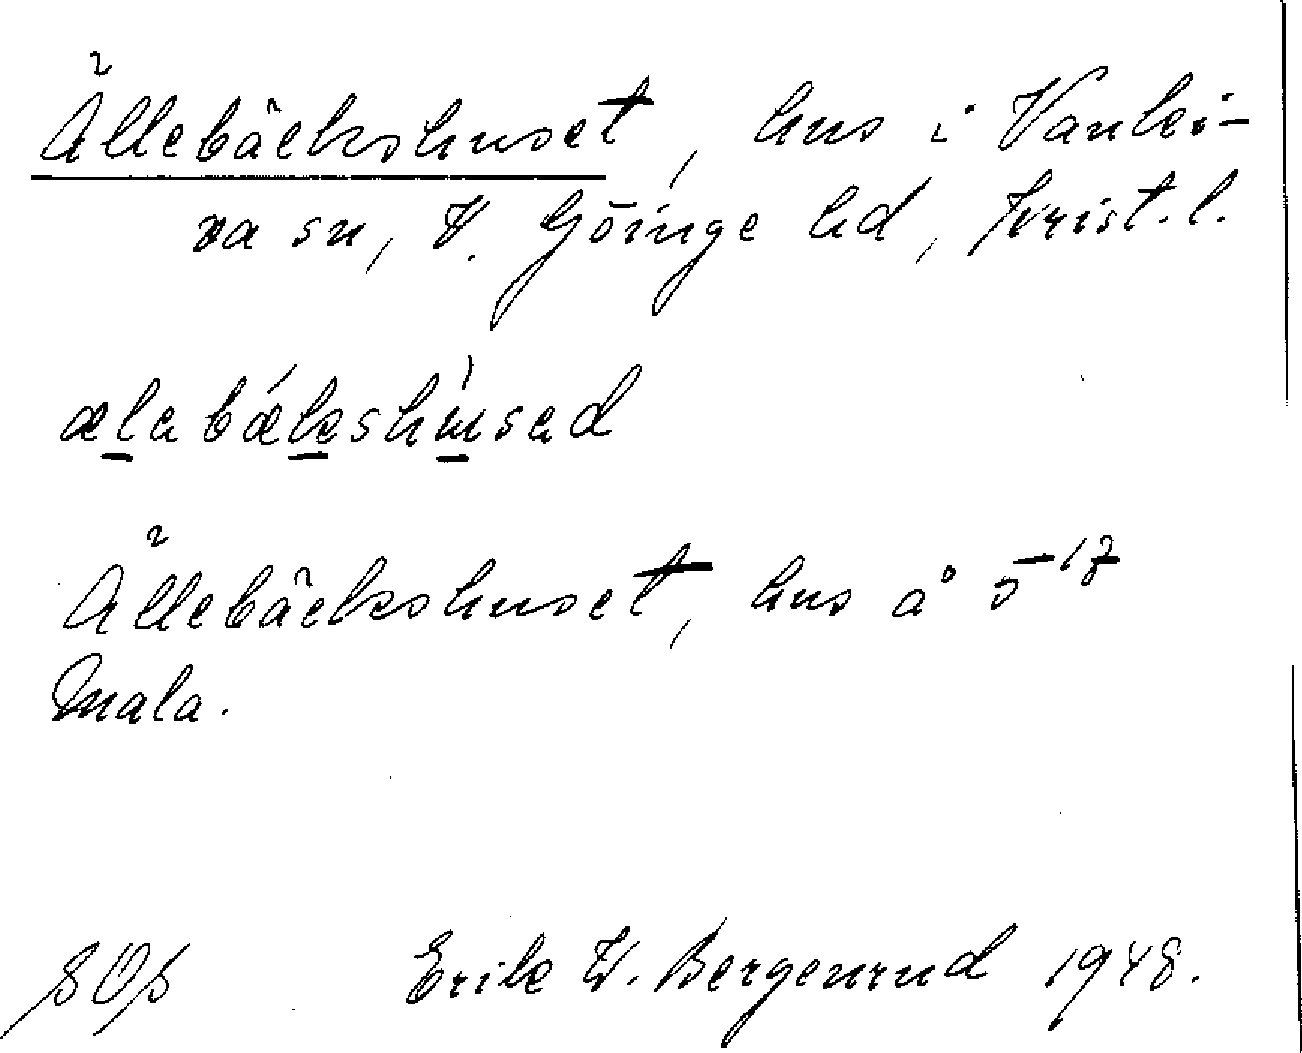 Ällebäckshuset, hus i Vanki-
va sn, V. Göinge hd, Krist. l.
ælabækshusad
Ällebäckshuset, hus å 5¹⁷
Mala.
Erik W. Bergenrud 1948.